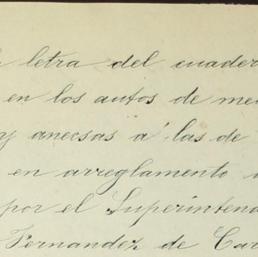 letra del cuader
en los autos de me
y anecsas a' las de
en arreglamento
por el Superintend
Fernandez de Car